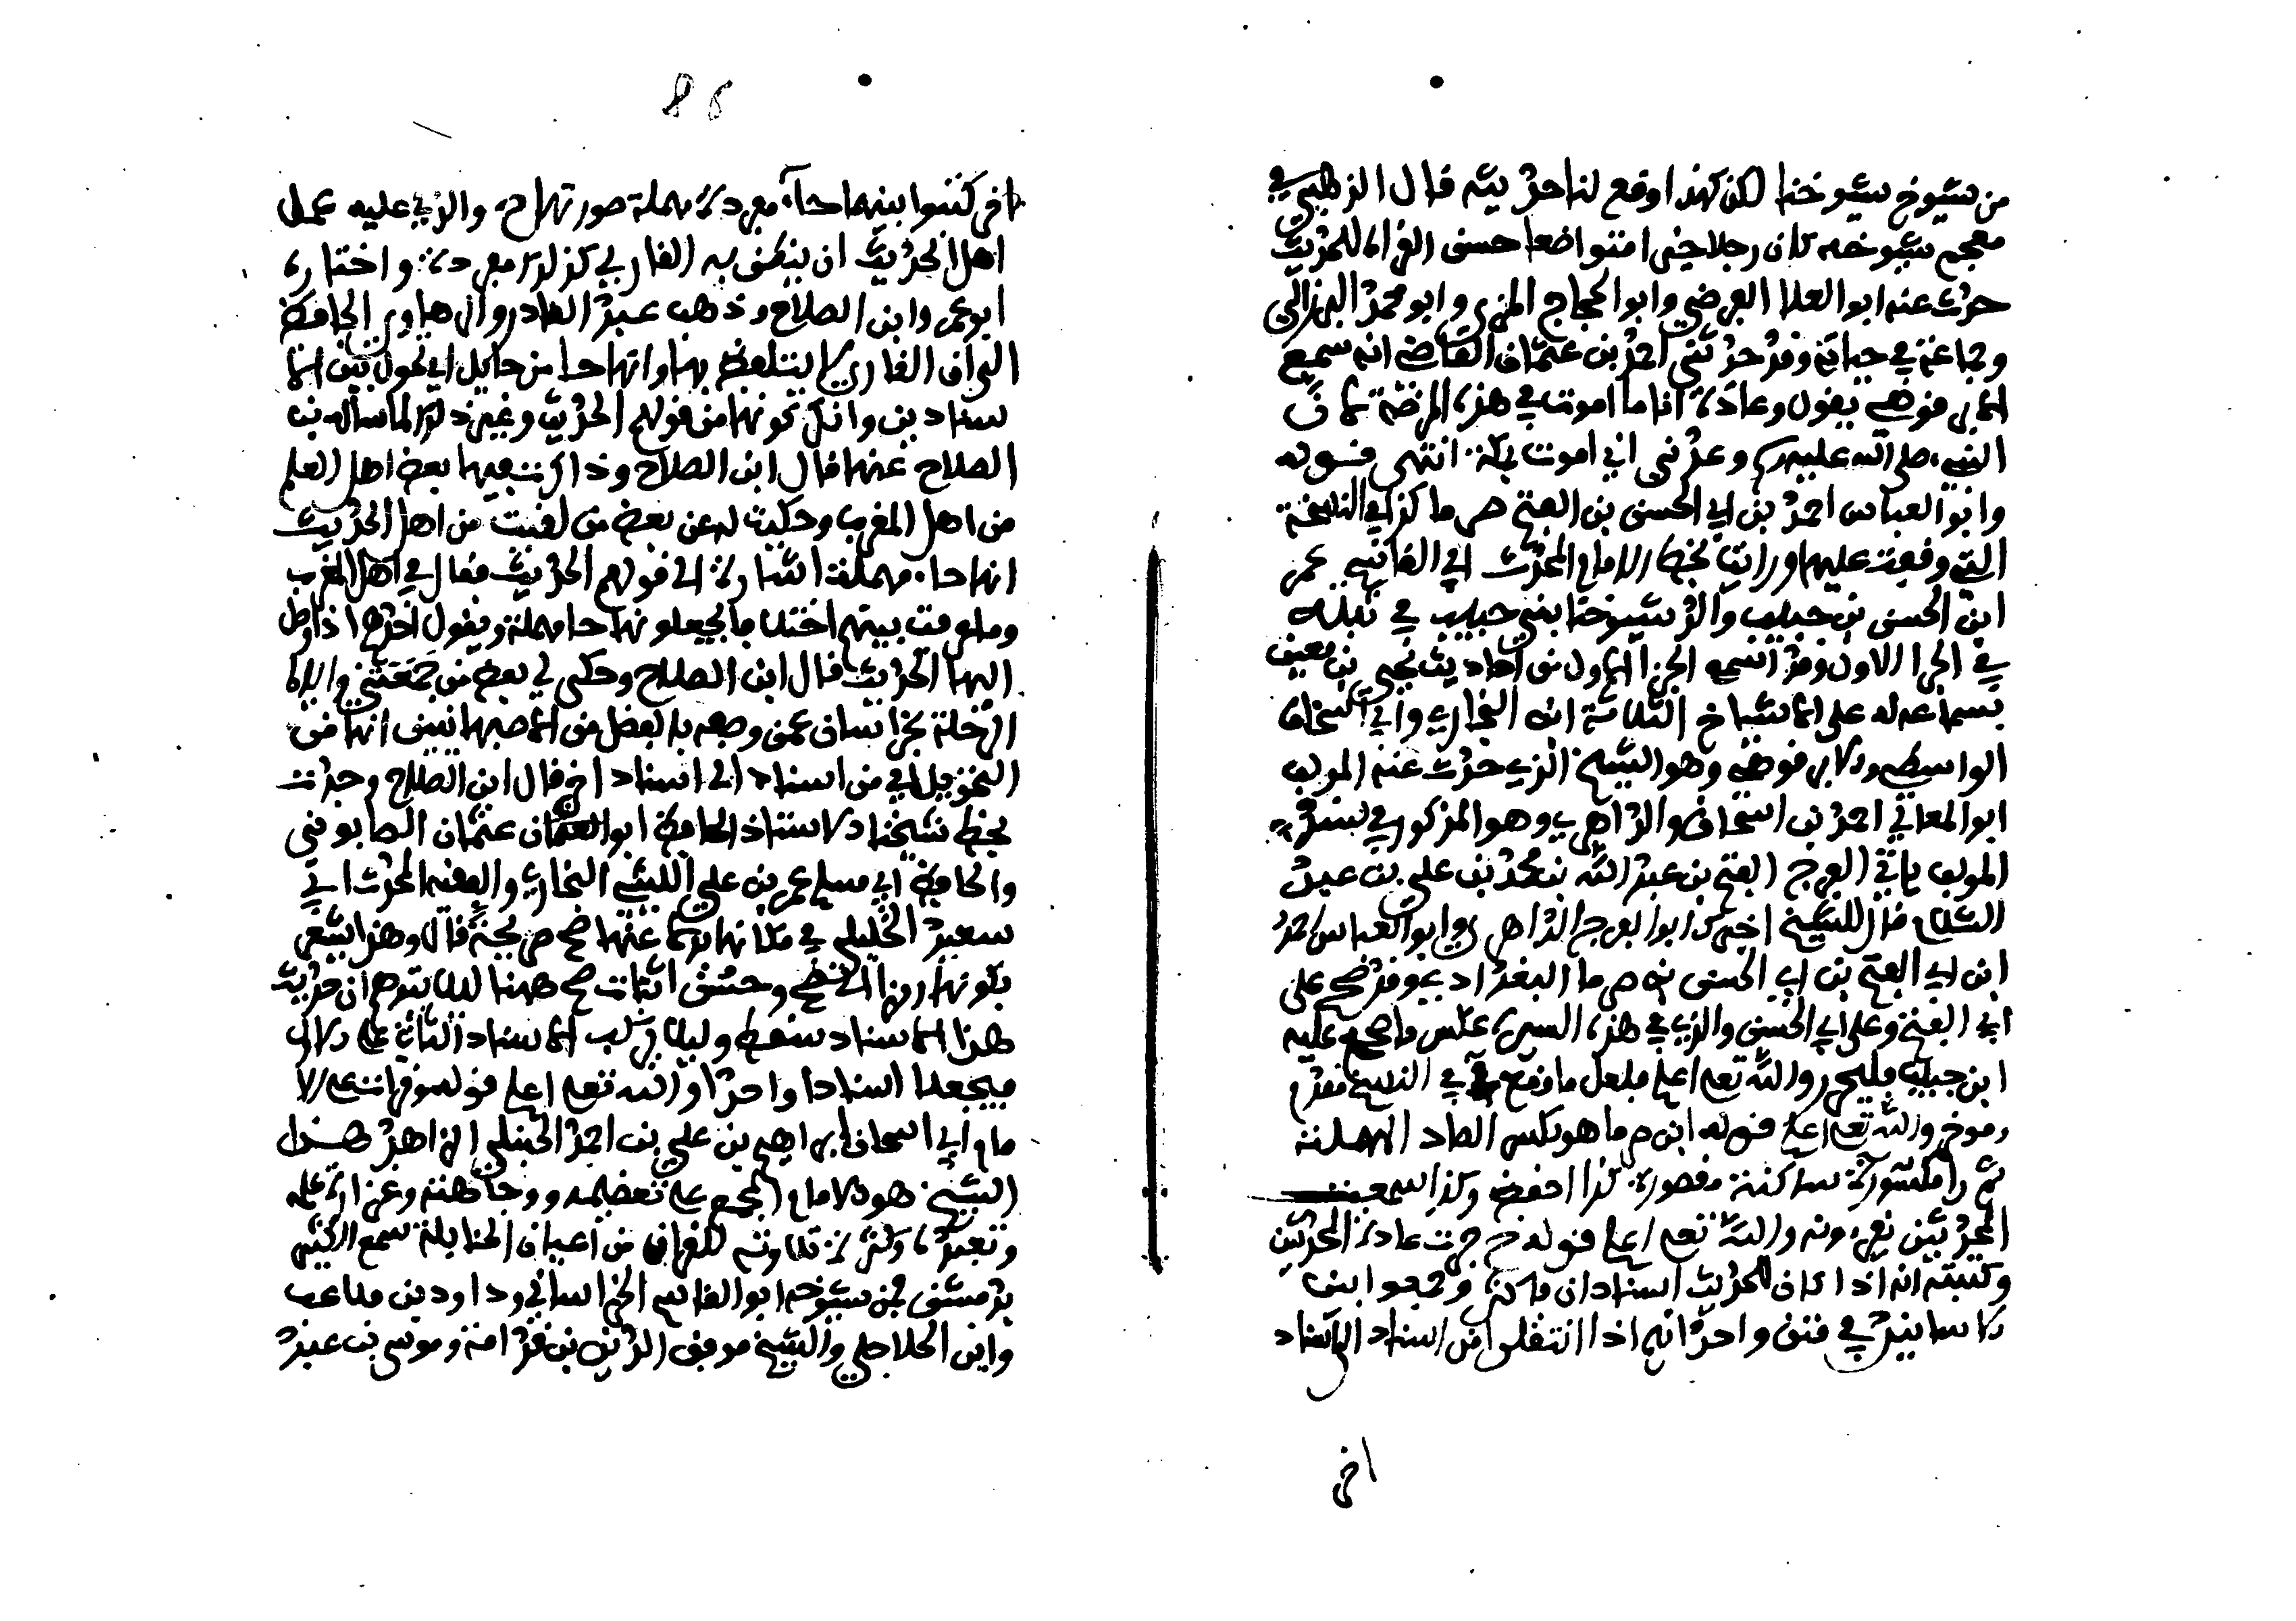 من شيوخ شيوخنا لكن كهذا وقع لنا حديثه قال الذهبي في
معجم شيوخه كان رجلا خيرا متواضعا حسن القراة للحديث
حدث عنه ابو العلا الفرضي وابو الحجاج المزي وابو محمد البرزالي
وجماعة في حياته وقد حدثني احمد بن عثمان القاضي انه سمع
الابرقوهي يقول وعاده انا ما اموت في هذه المرضة لان
النبي صلى الله عليه وسلم وعدني اني اموت بمكة انتهى قوله
وابو العباس احمد بن ابي الحسن بن ابي الفتح صرما كذا في النسخة
التي وقفت عليها ورايت بخط الامام المحدث ابي القاسم عمر
ابن الحسن بن حبيب والد شيوخنا بني حبيب في نقله
في الجزا الاول وقد اسمع الجزا الاول من احاديث يحيى بن معين
بسماعه له على الاشياخ الثلاثة ابن البخاري وابي اسحاق
الواسطي والابرقوهي وهو الشيخ الذي حدث عنه المولف
ابو المعالي احمد بن اسحاق والداهري وهو المذكور في سند
المولف بابي الفرج الفتح بن عبد الله بن محمد بن علي بن عبد
السلام قال للشيخ اخبرك ابو الفرج الداهري وابو العباس احمد
ابن ابي الفتح بن ابي الحسن بن صرما البغدادي وقد صح على
ابي الفتح وعلى ابي الحسن والذي في هذه السيرة عكس ما صح عليه
ابن حبيب فليحرر والله تعلى اعلم فلعل ما وقع في النسخ مقدم
وموخر والله تعلى اعلم قوله ابن صرما هو بكسر الصاد المهملة
ثم را مكسورة ساكنة مقصورة كذا احفظ وكذا اسمع
المحدثين يقرءونه والله تعلى اعلم قوله ح جرت عادة المحدثين
وكتبته انه اذا كان للحديث اسنادان فاكثر وجمعوا بين
الاسانيد في متن واحد انهم اذا انتقلوا من اسناد الى اسناد
اخر
86
اخر كتبوا بينهما حاء مفردة مهملة صورتها ح والذي عليه عمل
اهل الحديث ان ينطق به القاري كذلك مفردة واختاره
ابو عمرو ابن الصلاح وذهب عبد القادر الرهاوي الحافظ
الى ان القاري لا يتلفظ بها وانها حا من حايل اي تحول بين الا
سنادين وانكر كونها من قولهم الحديث وغير ذلك لما ساله ابن
الصلاح عنها قال ابن الصلاح وذاكرت فيها بعض اهل العلم
من اهل المغرب وحكيت له عن بعض من لقيت من اهل الحديث
انها حاء مهملة اشارة الى قولهم الحديث فقال لي اهل المغرب
وما عرفت بينهم اختلافا يجعلونها حا مهملة ويقول احدهم اذا وصل
اليها الحديث قال ابن الصلاح وحكى لي بعض من جمعتني واياه
الرحلة بخراسان عمن وصفه بالفضل من الاصبهانيين انها من
التحويل اي من اسناد الى اسناد اخر قال ابن الصلاح وجدت
بخط شيخنا الاستاذ الحافظ ابو عثمان الصابوني
والحافظ ابي مسلم عمر بن علي الليثي البخاري والفقيه المحدث ابي
سعيد الخليلي في مكانها بدلا عنها صح صريحة قال وهذا يشعر
بكونها رمزا الى صح وحسن اثبات صح ههنا ليلا يتوهم ان حديث
هذا الاسناد سقط وليلا يركب الاسناد الثاني على الاول
فيجعلا اسنادا واحدا والله تعلى اعلم قوله وقرات على الا
مام ابي اسحاق ابراهيم بن علي بن احمد الحنبلي الزاهد هذا
الشيخ هو الامام المجمع على تعظيمه ووجاهته وغزارة علمه
وتعبده وكثرة تلاوته للقران من اعيان الحنابلة سمع الكثير
بدمشق من شيوخه ابو القاسم الخراساني وداود بن ملاعب
وابن الجلاجلي والشيخ موفق الدين بن قدامة وموسى بن عبد